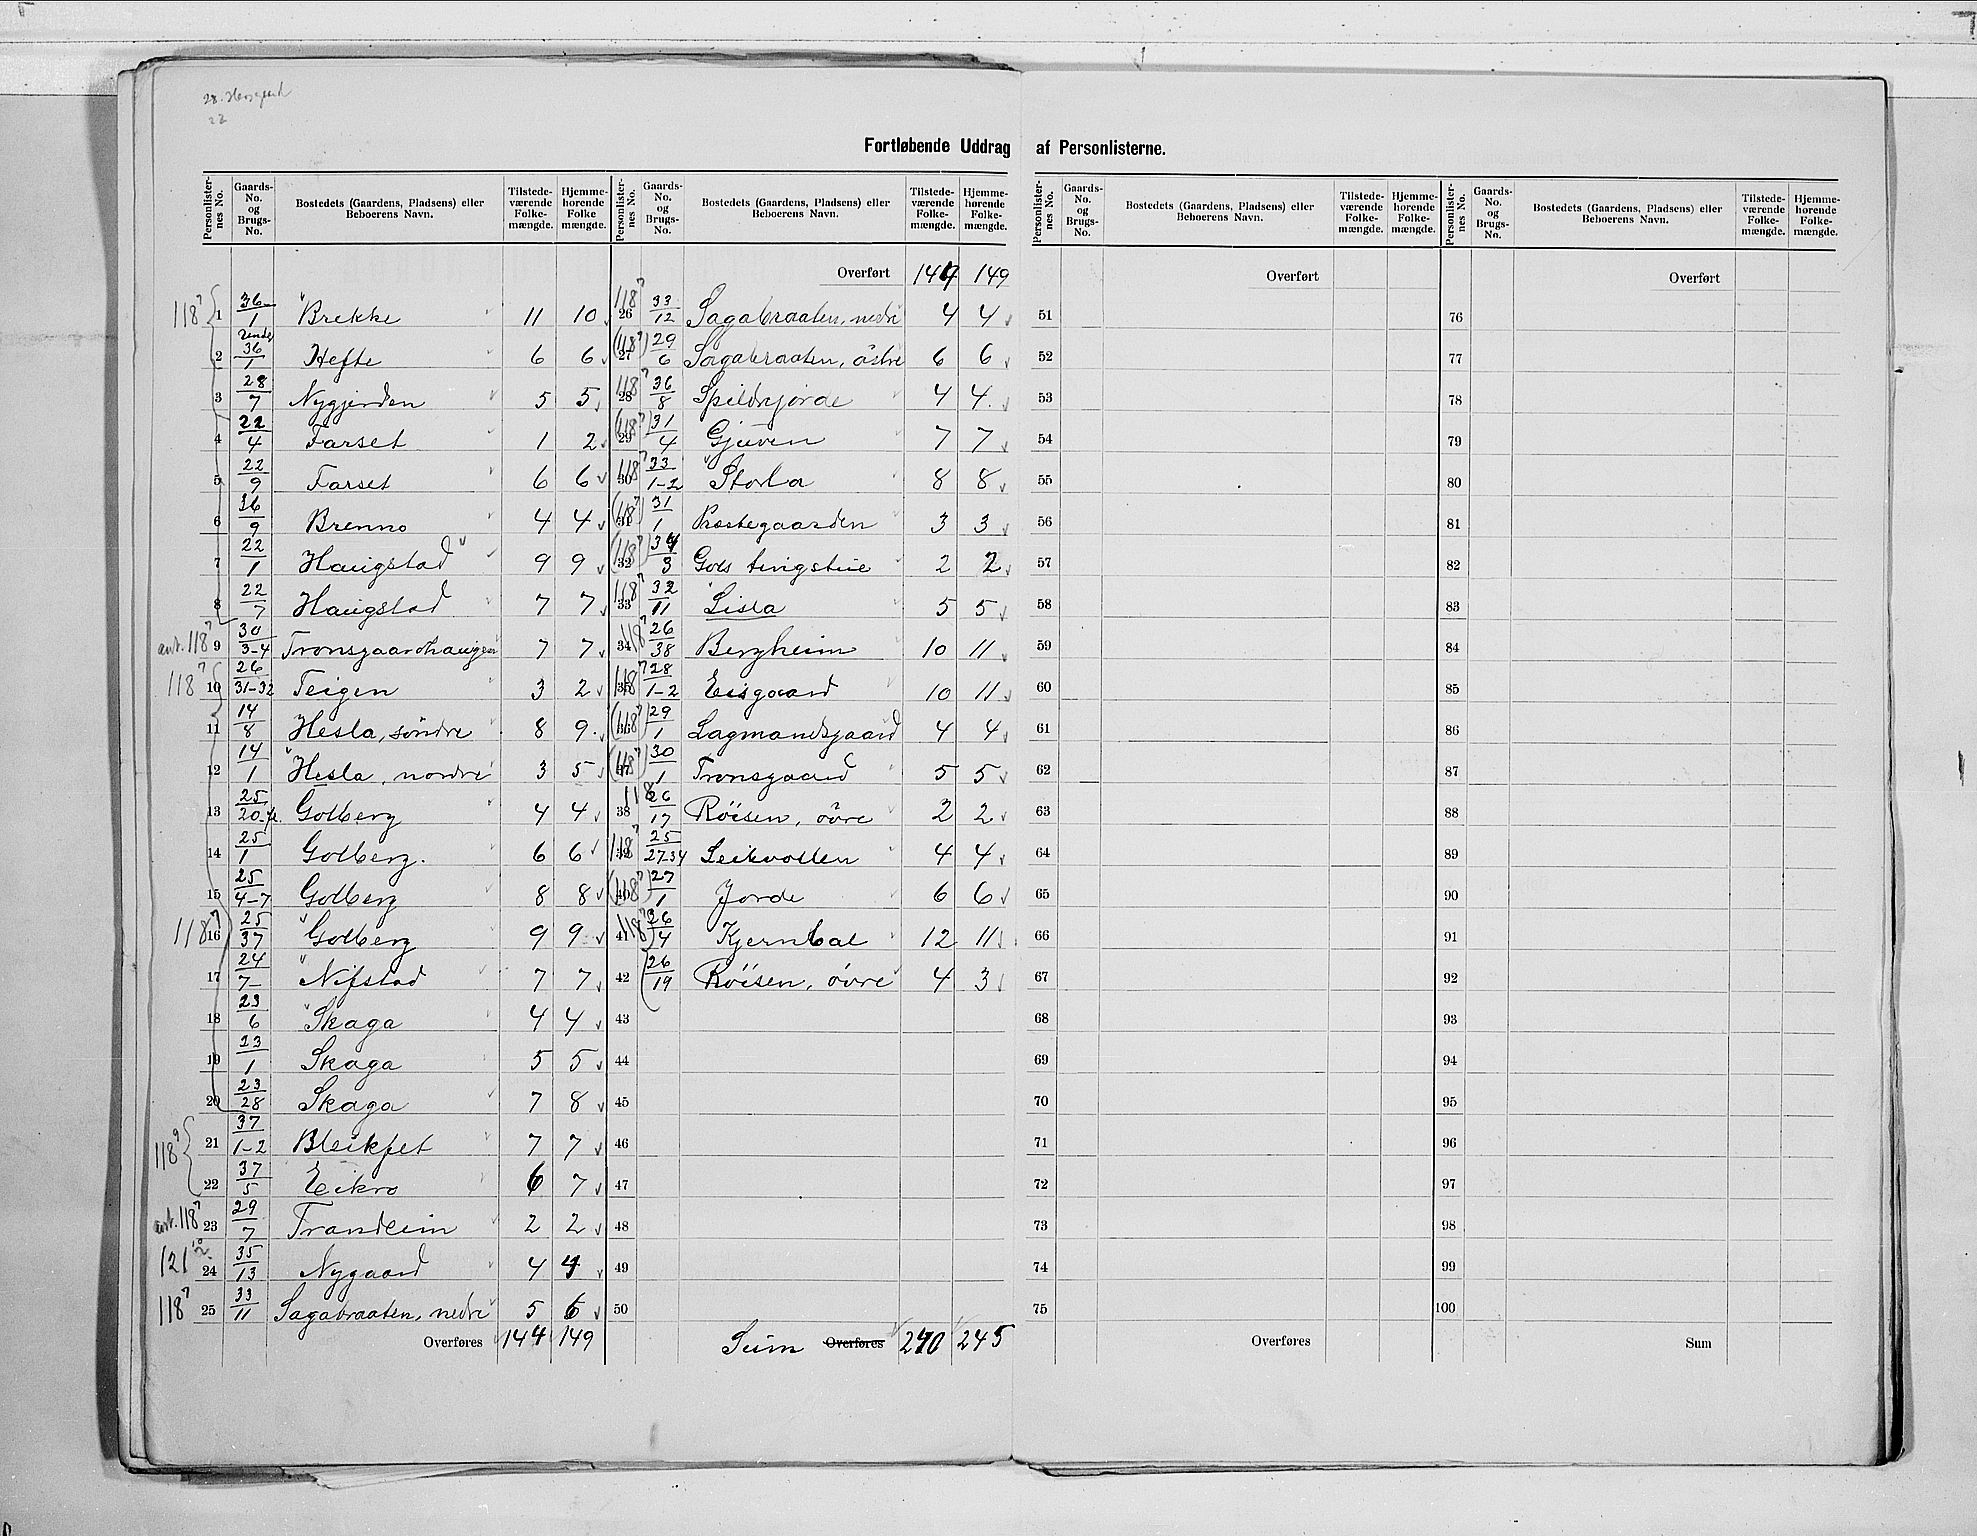 28. Hersgaard
22
Fortløbende Uddrag af Personlisterne.
Personlister-nes No. Gaards-No. og Brugs-No. Bostedets (Gaardens, Pladsens) eller Beboerens Navn. Tilstede-værende Folke-mængde. Hjemme-hørende Folke mængde. Personlister-nes No. Gaards-No. og Brugs-No. Bostedets (Gaardens, Pladsens) eller Beboerens Navn. Tilstede-værende Folke-mængde. Hjemme-hørende Folke-mængde. Personlister-nes No. Gaards-No. og Brugs-No. Bostedets (Gaardens, Pladsens) eller Beboerens Navn. Tilstede-værende Folke-mængde. Hjemme-hørende Folke-mængde. Personlister-nes No. Gaards-No. og Brugs-No. Bostedets (Gaardens, Pladsens) eller Beboerens Navn. Tilstede-værende Folke-mængde. Hjemme-hørende Folke-mængde.
Overført 144 149 Overført Overført
118⁷ 1 36/1 Brekke 11 10 118⁷ 26 33/12 Sagabraaten, nedre 4 4 51 76
2 36/1 Hefte 6 6 (118⁷) 27 29/6 Sagabraaten, östre 6 6 52 77
3 28/7 Nygjerden 5 5 118⁷ 28 36/8 Spildrejorde 4 4 53 78
4 22/4 Farset 1 2 (118⁷) 29 31/4 Gjuven 7 7 54 79
5 22/9 Farset 6 6 118⁷ 30 33/1-2 Storla 8 8 55 80
6 36/9 Brenno 4 4 (118⁷) 31 31/1 Præstegaarden 3 3 56 81
7 22/1 Haugstad 9 9 (118⁷) 32 34/3 Gols tingstue 2 2 57 82
8 22/7 Haugstad 7 7 118⁷ 33 32/11 Lisla 5 5 58 83
ant. 118⁷ 9 30/3-4 Tronsgaardhaugen 7 7 118⁷ 34 26/38 Bergheim 10 11 59 84
118⁷ 10 26/31-32 Teigen 3 2 118⁷ 35 28/1-2 Eisgaard 10 11 60 85
11 14/8 Hesla, söndre 8 9 (118⁷) 36 29/1 Lagmandsgaard 4 4 61 86
12 14/1 Hesla, nordre 3 5 (118⁷) 37 30/1 Tronsgaard 5 5 62 87
13 25/20 Golberg 4 4 118 38 26/17 Röisen, övre 2 2 63 88
14 25/1 Golberg. 6 6 118⁷ 39 25/27-34 Leikvollen 4 4 64 89
15 25/4-7 Golberg 8 8 (118⁷) 40 27/1 Jorde 6 6 65 90
118⁷ 16 25/37 Golberg 9 9 118⁷ 41 26/4 Kjerndal 12 11 66 91
17 24/7 Nifstad 7 7 42 26/19 Röisen, övre 4 3 67 92
18 23/6 Skaga 4 4 43 68 93
19 23/1 Skaga 5 5 44 69 94
20 23/28 Skaga 7 8 45 70 95
118⁹ 21 37/1-2 Bleikfet 7 7 46 71 96
22 37/5 Eikro 6 7 47 72 97
ant. 118⁷ 23 29/7 Trandeim 2 2 48 73 98
121 24 35/13 Nygaard 4 4 49 74 99
118⁷ 25 33/11 Sagabraaten, nedre 5 6 50 75 100
Overføres 144 149 Sum Overføres 240 245 Overføres Sum